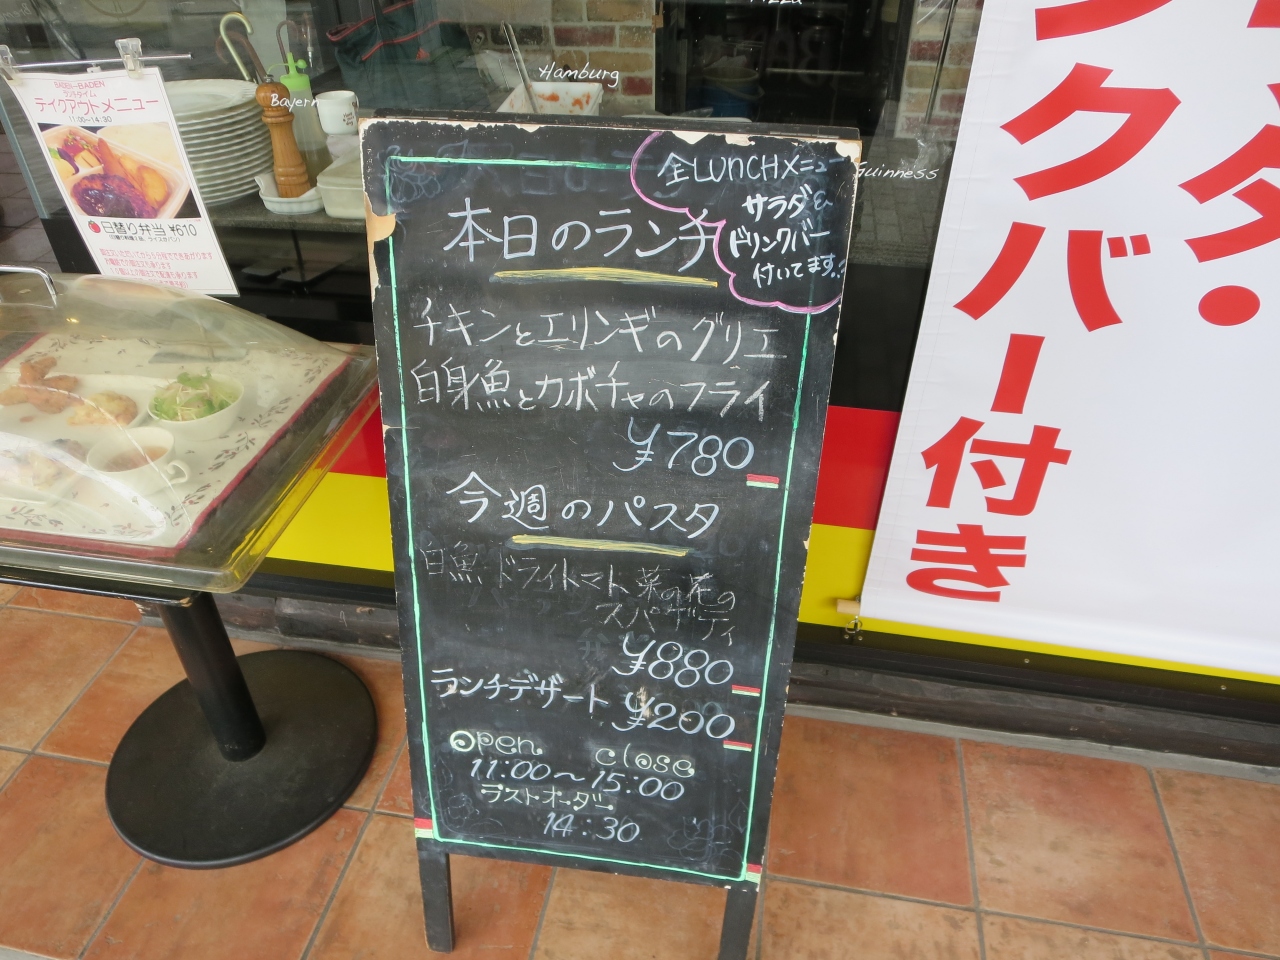 Pizza
Hamburg
Bayern
Guinness
BADEN-BADEN
ランチタイム
テイクアウトメニュー
11:00~14:30
日替り弁当 ¥610
全LUNCHメニュー
サラダ&
ドリンクバー
付いてます。
本日のランチ
チキンとエリンギのグリエ
白身魚とカボチャのフライ
¥780
今週のパスタ
白魚 ドライトマト 菜の花の
スパゲティ
¥880
ランチデザート ¥200
Open close
11:00～15:00
ラストオーダー
14:30
ダ・
ンクバー付き